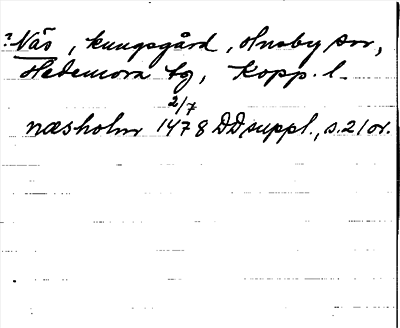 ? Näs, kungsgård, Husby sn,
Hedemora tg, Kopp. l.
2/7
næsholm 1478 DD suppl., s. 21 or.